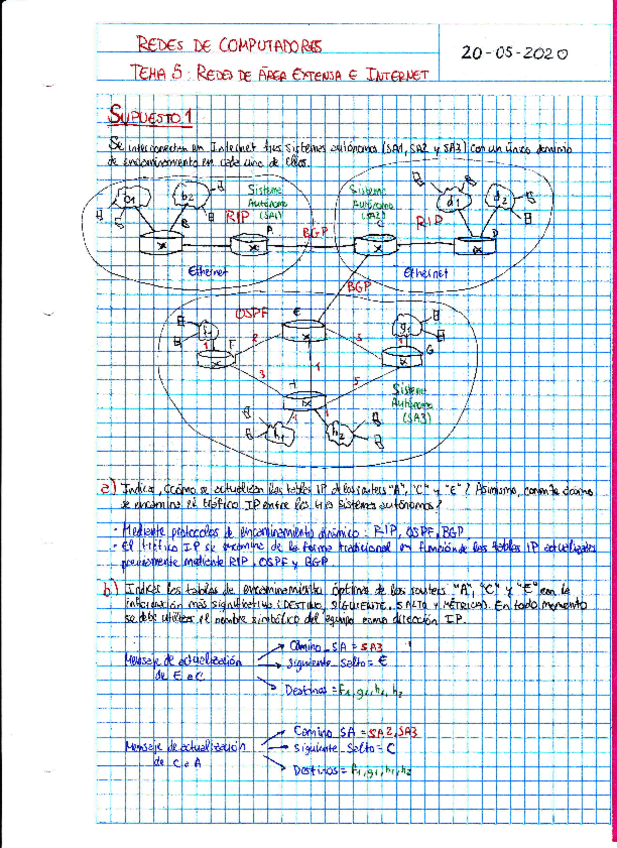 REDES DE COMPUTADORES
20-05-2020
TEMA 5: REDES DE ÁREA EXTENSA E INTERNET
SUPUESTO 1
Se interconectan en Internet tres sistemas autónomos (SA1, SA2 y SA3) con un único dominio
de encaminamiento en cada uno de ellos.
b2
Sistema
Autónomo
(SA1)
RIP
B
A
Ethernet
BGP
Sistema
Autónomo
(SA2)
RIP
d1
d2
C
D
Ethernet
BGP
OSPF
E
f1
1
F
2
3
g1
1
G
3
1
5
H
1
1
h1
h2
Sistema
Autónomo
(SA3)
a) Indica, ¿cómo se actualizan las tablas IP de los routers "A", "C" y "E"? Asimismo, comente cómo
se encamina el tráfico IP entre los tres sistemas autónomos?
· Mediante protocolos de encaminamiento dinámico: RIP, OSPF, BGP
· El tráfico IP se encamina de la forma tradicional en función de las tablas IP actualizadas
previamente mediante RIP, OSPF y BGP
b) Indica las tablas de encaminamiento óptimas de los routers "A", "C" y "E" con la
información más significativa (DESTINO, SIGUIENTE SALTO y MÉTRICA). En todo momento
se debe utilizar el nombre simbólico del equipo como dirección IP.
Mensaje de actualización
de E a C
Camino_SA = SA3
Siguiente Salto = E
Destinos = f1, g1, h1, h2
Mensaje de actualización
de C a A
Camino SA = SA2, SA3
Siguiente Salto = C
Destinos = f1, g1, h1, h2